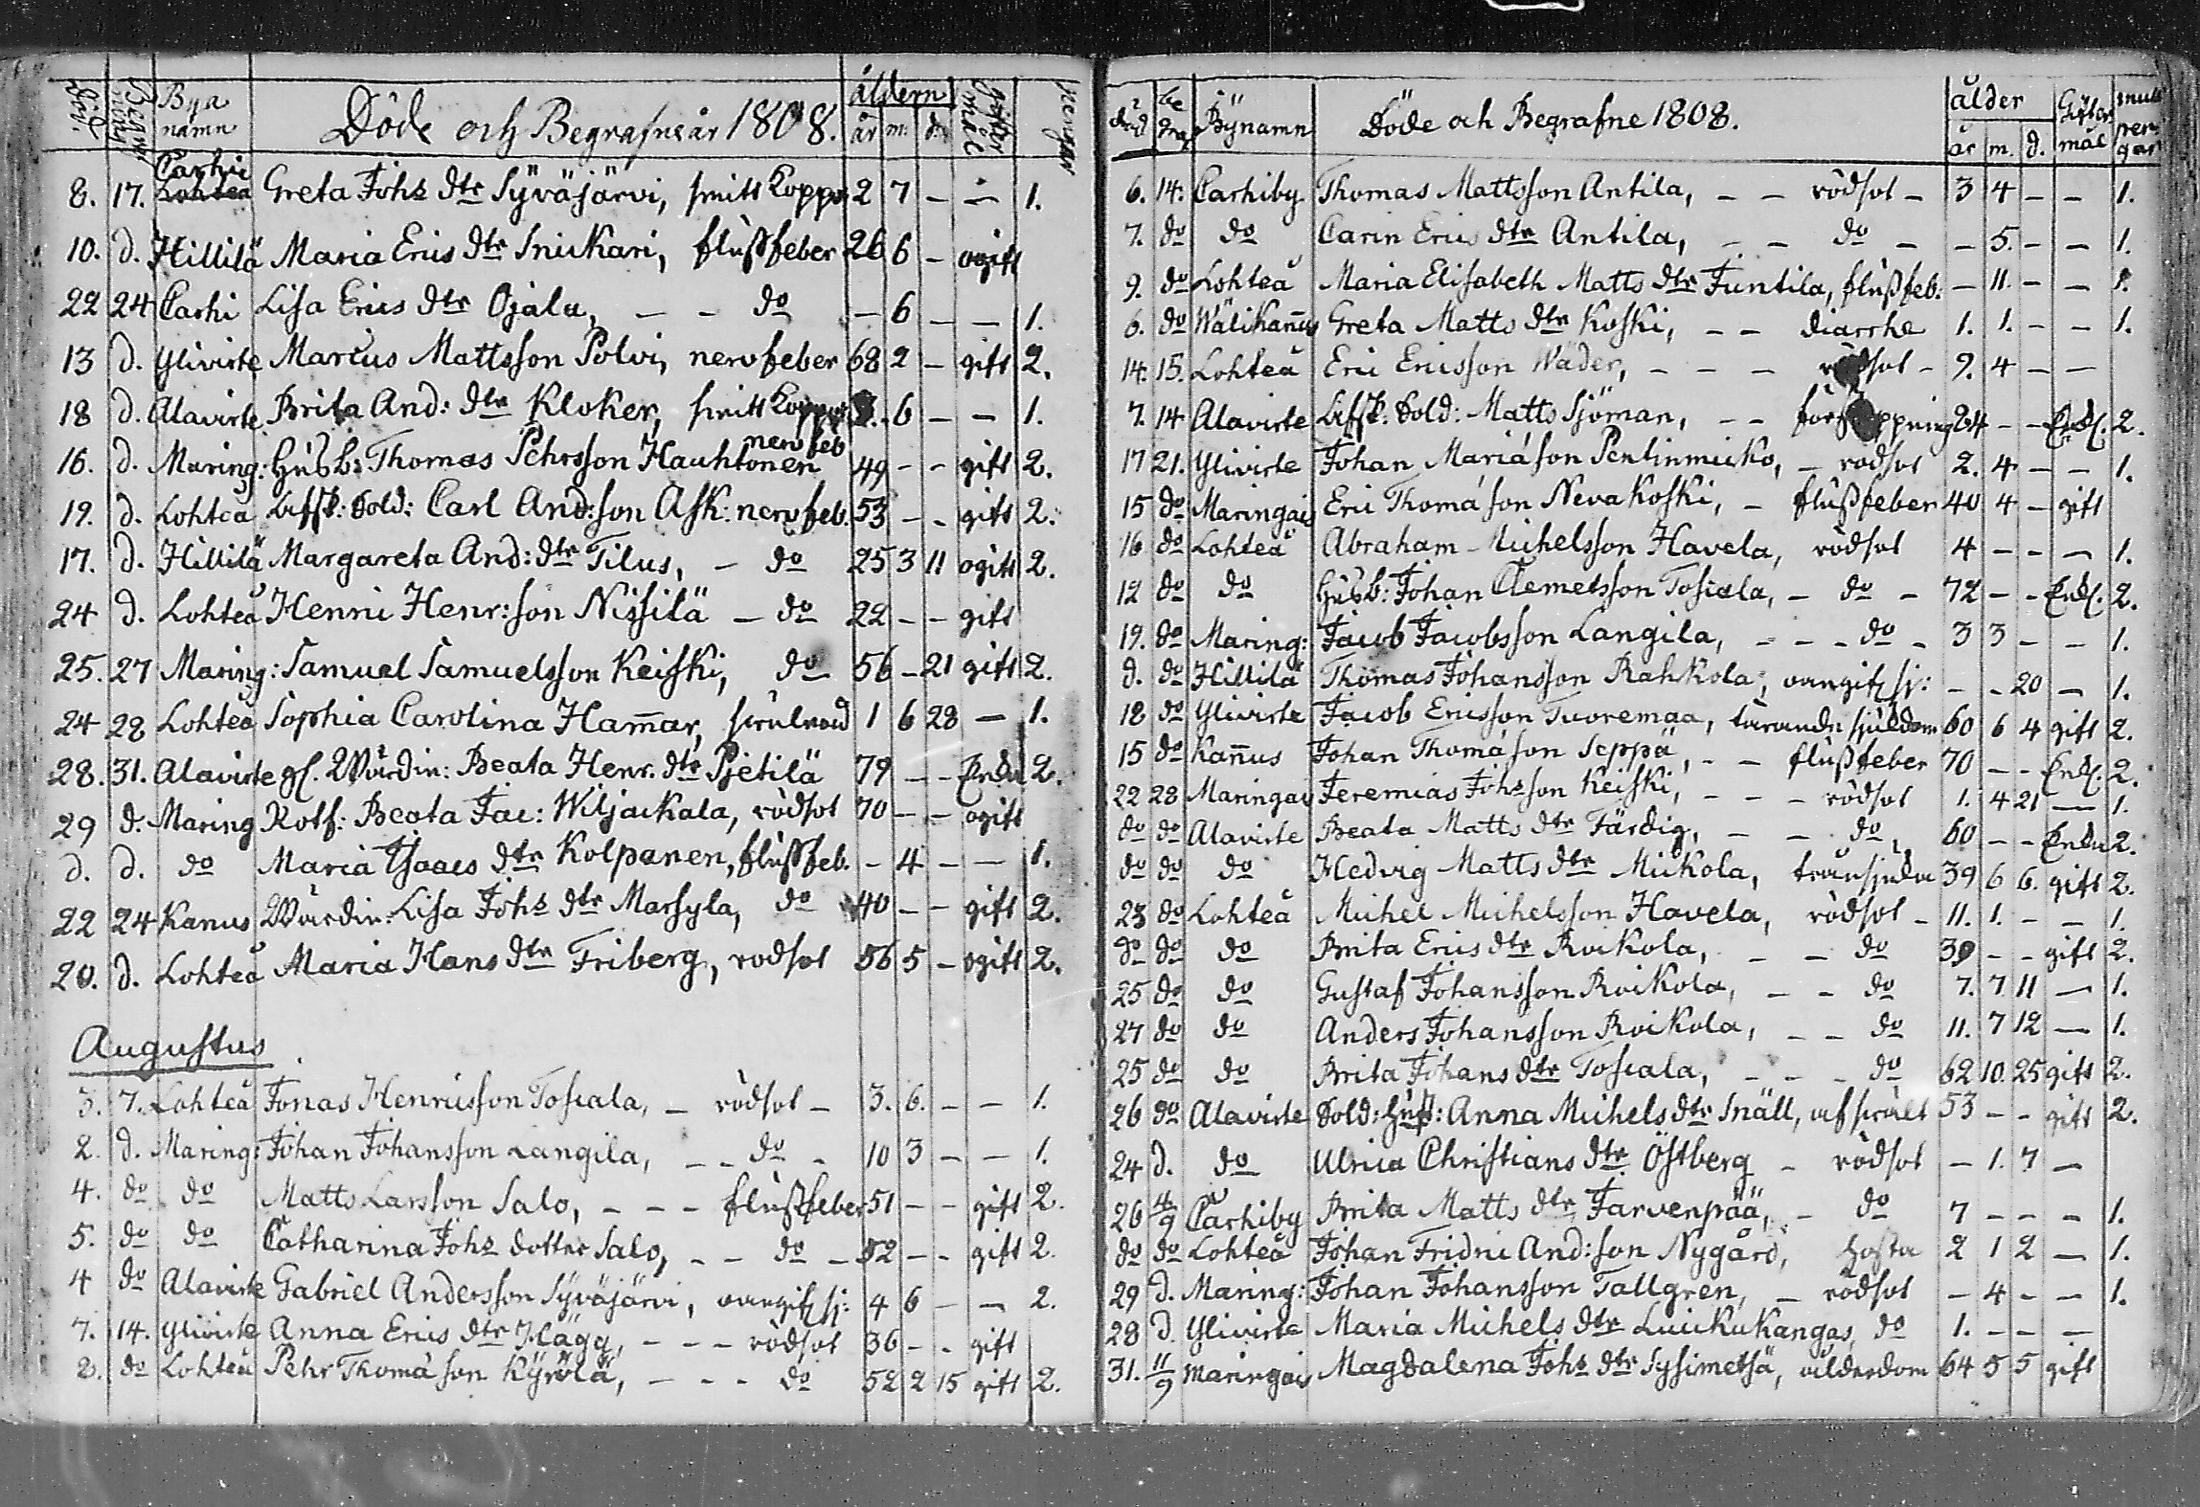 Död. Begrafning Bya namn Döde och Begrafne år 1808. åldern år m: d. gifter mål pengar
8. 17. Carhi Lohteå Greta Johs dtr Syväjärvi, smitt koppor 2 7 – – 1.
10. d. Hillilä Maria Erics dtr Snickari, flussfeber 26 6 – ogift
22 24 Carhi Lisa Erics dtr Ojala, – – do – 6 – – 1.
13 d. Ylivirte Marcus Mattsson Polvi, nervfeber 68 2 – gift 2.
18 d. Alavirte Brita And: dtr Kloker, smitt koppor 3. 6 – – 1.
16. d. Maring: Husb: Thomas Pehrsson Hauhtonen nervfeb 49 – – gift 2.
19. d. Lohteå Afsk: Sold: Carl And:son Ask: nervfeb. 53 – – gift 2.
17. d. Hillilä Margareta And: dtr Tilus, – do 25 3 11 ogift 2.
24 d. Lohteå Henric Henr:son Nissilä – do 22 – – gift
25. 27 Maring: Samuel Samuelsson Keiski, do 56 – 21 gift 2.
24 28 Lohteå Sophia Carolina Ham̄ar, 1 6 28 – 1.
28. 31. Alavirte gl. Wärdin: Beata Henr. dtr Pjetilä 79 – – Enka 2.
29 d. Maring Roth: Beata Jac: Wiljackala, rödsot 70 – – ogift
d. d. do Maria Isaacs dtr Kolpanen, flussfeb. – 4 – – 1.
22 24 Kanus Wärdin: Lisa Johs dtr Marsyla, do 40 – – gift 2.
20. d. Lohteå Maria Hans dtr Friberg, rodsot 56 5 – ogift 2.
Augustus
3. 7. Lohteå Jonas Henricsson Tosicala, – rödsot – 3. 6. – – 1.
2. d. Maring: Johan Johansson Langila, – – do – 10 3 – – 1.
4. do do Matts Larsson Salo, – – – flussfeber 51 – – gift 2.
5. do do Catharina Johs dotter Salo, – – do – 52 – – gift 2.
4 do Alavirte Gabriel Andersson Syväjärvi, oangifl sj: 4 6 – – 2.
7. 14. Ylivirte Anna Erics dtr Hägg, – – – rödsot 36 – – gift
2. do Lohteå Pehr Thomasson Kyrölä, – – – do 52 2 15 gift 2.
död be grag Bynamn Döde och Begrafne 1808. ålder år m. d. Gifter mål mull pengar
6. 14. Carhiby Thomas Mattsson Antila, – – rödsot – 3 4 – – 1.
7. do do Carin Erics dtr Antila, – – do – – 5. – – 1.
9. do Lohteå Maria Elisabeth Matts dtr Juntila, flussfeb. – 11. – – 1.
6. do Wälikan̄us Greta Matts dtr Koski, – – diarrhe 1. 1. – – 1.
14. 15. Lohteå Eric Ericsson Wäder, – – – rödsot – 9. 4 – –
7. 14 Alavirte Afsk: Sold: Matts Sjöman, – – förstoppning 64 – – Enkl. 2.
17 21. Ylivirte Johan Mariäson Pentinmicko, – rodsot 2. 4 – – 1.
15 do Maringais Eric Thomäson Nevakoski, – flussfeber 40 4 – gift
16 do Lohteå Abraham Michelsson Havela, rödsot 4 – – – 1.
12 do do Husb: Johan Clemetsson Tosicala, – do – 72 – – Enkl. 2.
19. do Maring: Jacob Jacobsson Langila, – – – do – 3 3 – – 1.
d. do Hillilä Thomas Johansson Rahkola, oangifl sj: – – 20 – 1.
18 do Ylivirte Jacob Ericsson Tuoremaa, tärande sjukdom 60 6 4 gift 2.
15 do Kan̄us Johan Thomäson Seppä, – – flussfeber 70 – – Enkl. 2.
22 28 Maringais Jeremias Johsson Keiski, – – – rödsot 1. 4 21 – 1.
do do Alavirte Beata Matts dtr Färdig, – – do 60 – – Enka 2.
do do do Hedvig Matts dtr Mickola, 39 6 6. gift 2.
23 do Lohteå Michel Michelsson Havela, rödsot – 11. 1. – – 1.
do do do Brita Erics dtr Roikola, – – do 39 – – gift 2.
25 do do Gustaf Johansson Roikola, – – do 7. 7 11 – 1.
27 do do Anders Johansson Roikola, – – do 11. 7 12 – 1.
25 do do Brita Johans dtr Tosicala, – – – do 62 10. 25 gift 2.
26 do Alavirte Sold: Hust: Anna Michels dtr Snäll, 53 – – gift 2.
24 d. do Ulrica Christians dtr Östberg – rödsot – 1. 7 –
26 4/9 Carhiby Brita Matts dtr Jarvenpää, – do 7 – – – 1.
do do Lohteå Johan Fridric And:son Nygård, hosta 2 1 2 – 1.
29 d. Maring: Johan Johansson Tallgren, – rödsot – 4 – – 1.
28 d. Ylivirte Maria Michels dtr Luickukangas, do 1. – – –
31. 11/9 Maringais Magdalena Johs dtr Sysimetsä, ålderdom 64 5 5 gift